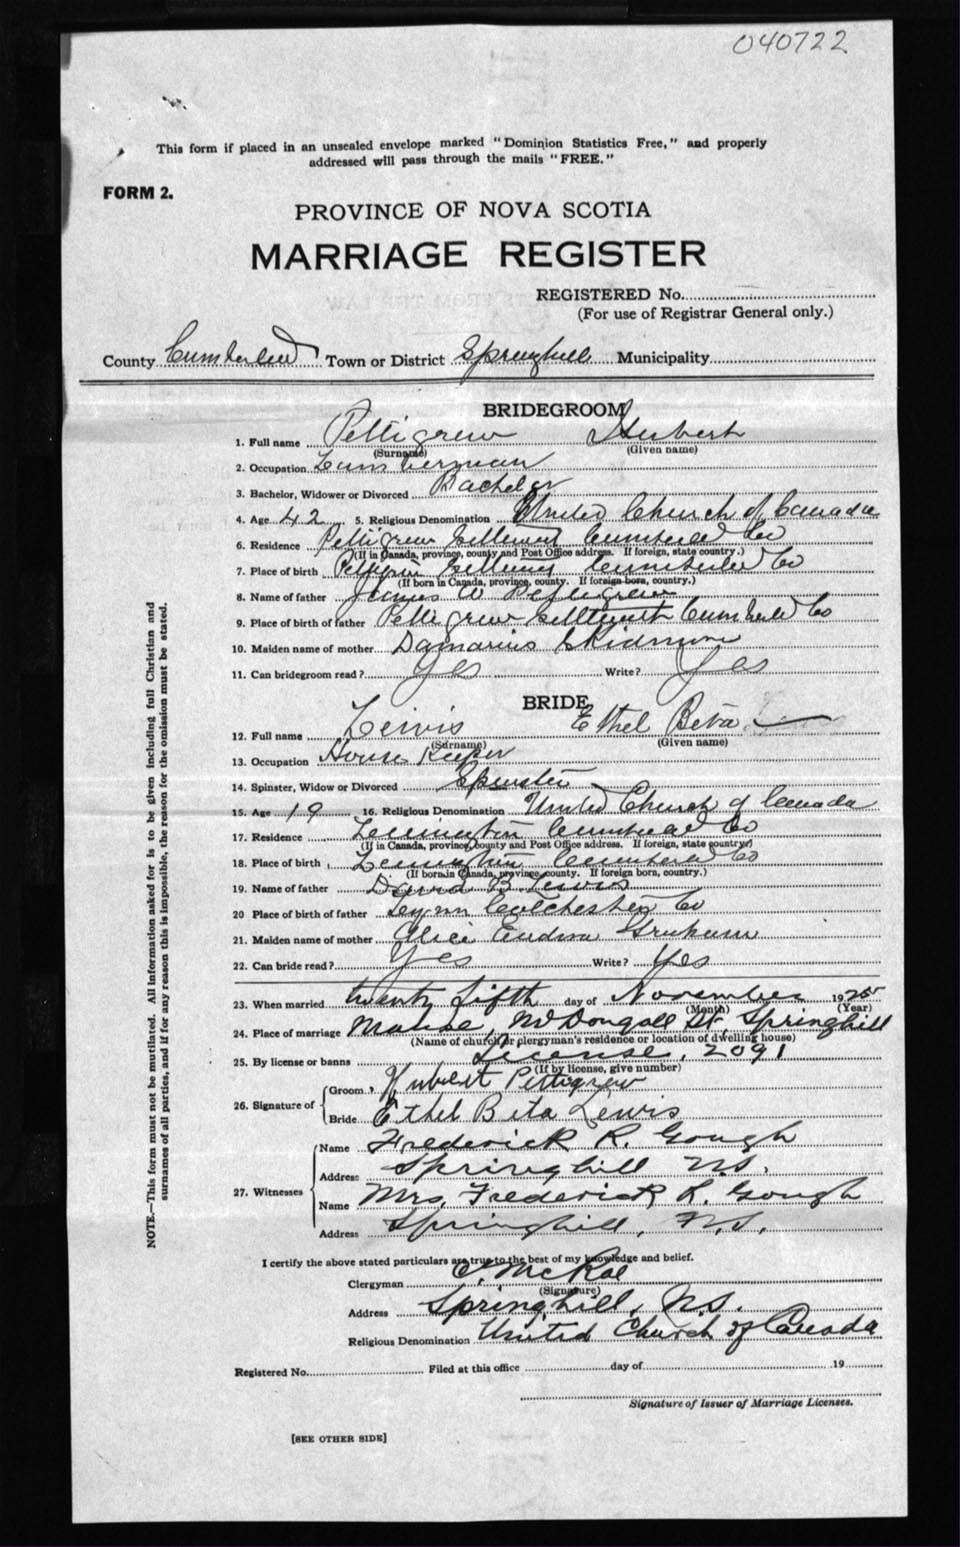 040722
This form if placed in an unsealed envelope marked "Dominion Statistics Free," and properly
addressed will pass through the mails "FREE."
FORM 2.
PROVINCE OF NOVA SCOTIA
MARRIAGE REGISTER
REGISTERED No.
(For use of Registrar General only.)
County Cumberland Town or District Springhill Municipality
BRIDEGROOM
1. Full name Pettigrew Hubert
(Surname) (Given name)
2. Occupation Lumberman
3. Bachelor, Widower or Divorced Bachelor
4. Age 42 5. Religious Denomination United Church of Canada
6. Residence Pettigrew Settlement Cumberland Co
(If in Canada, province, county and Post Office address. If foreign, state country.)
7. Place of birth Pettigrew Settlement Cumberland Co
(If born in Canada, province, county. If foreign born, country.)
8. Name of father James W Pettigrew
9. Place of birth of father Pettigrew Settlement Cumberland Co
10. Maiden name of mother Damarius Skidmore
11. Can bridegroom read? Yes Write? Yes
BRIDE
12. Full name Lewis Ethel Beta
(Surname) (Given name)
13. Occupation House Keeper
14. Spinster, Widow or Divorced Spinster
15. Age 19 16. Religious Denomination United Church of Canada
17. Residence Leamington Cumberland Co
(If in Canada, province, county and Post Office address. If foreign, state country.)
18. Place of birth Leamington Cumberland Co
(If born in Canada, province, county. If foreign born, country.)
19. Name of father David B. Lewis
20 Place of birth of father Lynn Colchester Co
21. Maiden name of mother Alice Graham
22. Can bride read? Yes Write? Yes
23. When married twenty fifth day of November 1925
(Month) (Year)
24. Place of marriage Manse, McDougall St, Springhill
(Name of church or clergyman's residence or location of dwelling house)
25. By license or banns License, 2091
(If by license, give number)
26. Signature of
Groom Hubert Pettigrew
Bride Ethel Beta Lewis
27. Witnesses
Name Frederick R. Gough
Address Springhill N.S.
Name Mrs. Frederick R. Gough
Address Springhill, N.S.
I certify the above stated particulars are true to the best of my knowledge and belief.
Clergyman McRae
(Signature)
Address Springhill, N.S.
Religious Denomination United Church of Canada
Registered No. Filed at this office day of 19
Signature of Issuer of Marriage Licenses.
[SEE OTHER SIDE]
NOTE.—This form must not be mutilated. All information asked for is to be given including full Christian and
surnames of all parties, and if for any reason this is impossible, the reason for the omission must be stated.